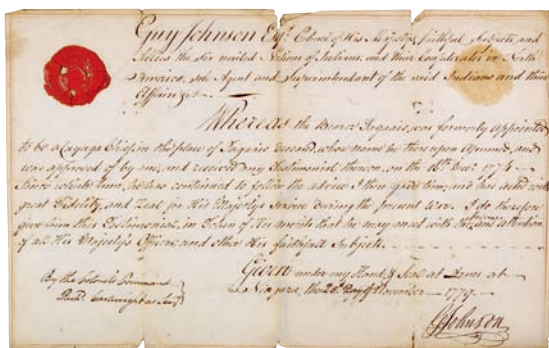 Guy Johnson Esqr. Colonel of His Majesty's faithful Subjects and
Allies the Six united Nations of Indians, and their Confederates in North
America, sole Agent and Superintendent of the said Indians and their
Affairs &c.
Whereas the Bearer was formerly appointed
to be a Cayuga Chief, in the place of deceased, whose name he thereupon Assumed, and
was approved of by me, and received my Testimonial thereon, on the 16th Decr. 1774
Since which time, he has continued to follow the advice I then gave him, and has acted with
great Fidelity, and Zeal for His Majesty's Service during the present War. I do therefore
give him this Testimonial, in Token of His merits that he may meet with the and attention
of all His Majesty's Officers, and other His faithful Subjects.
Given under my Hand & Seal at Arms at
Niagara, the 23d. Day of December 1779.
By the Colonel's Command
Cartwright as Secy.
GJohnson